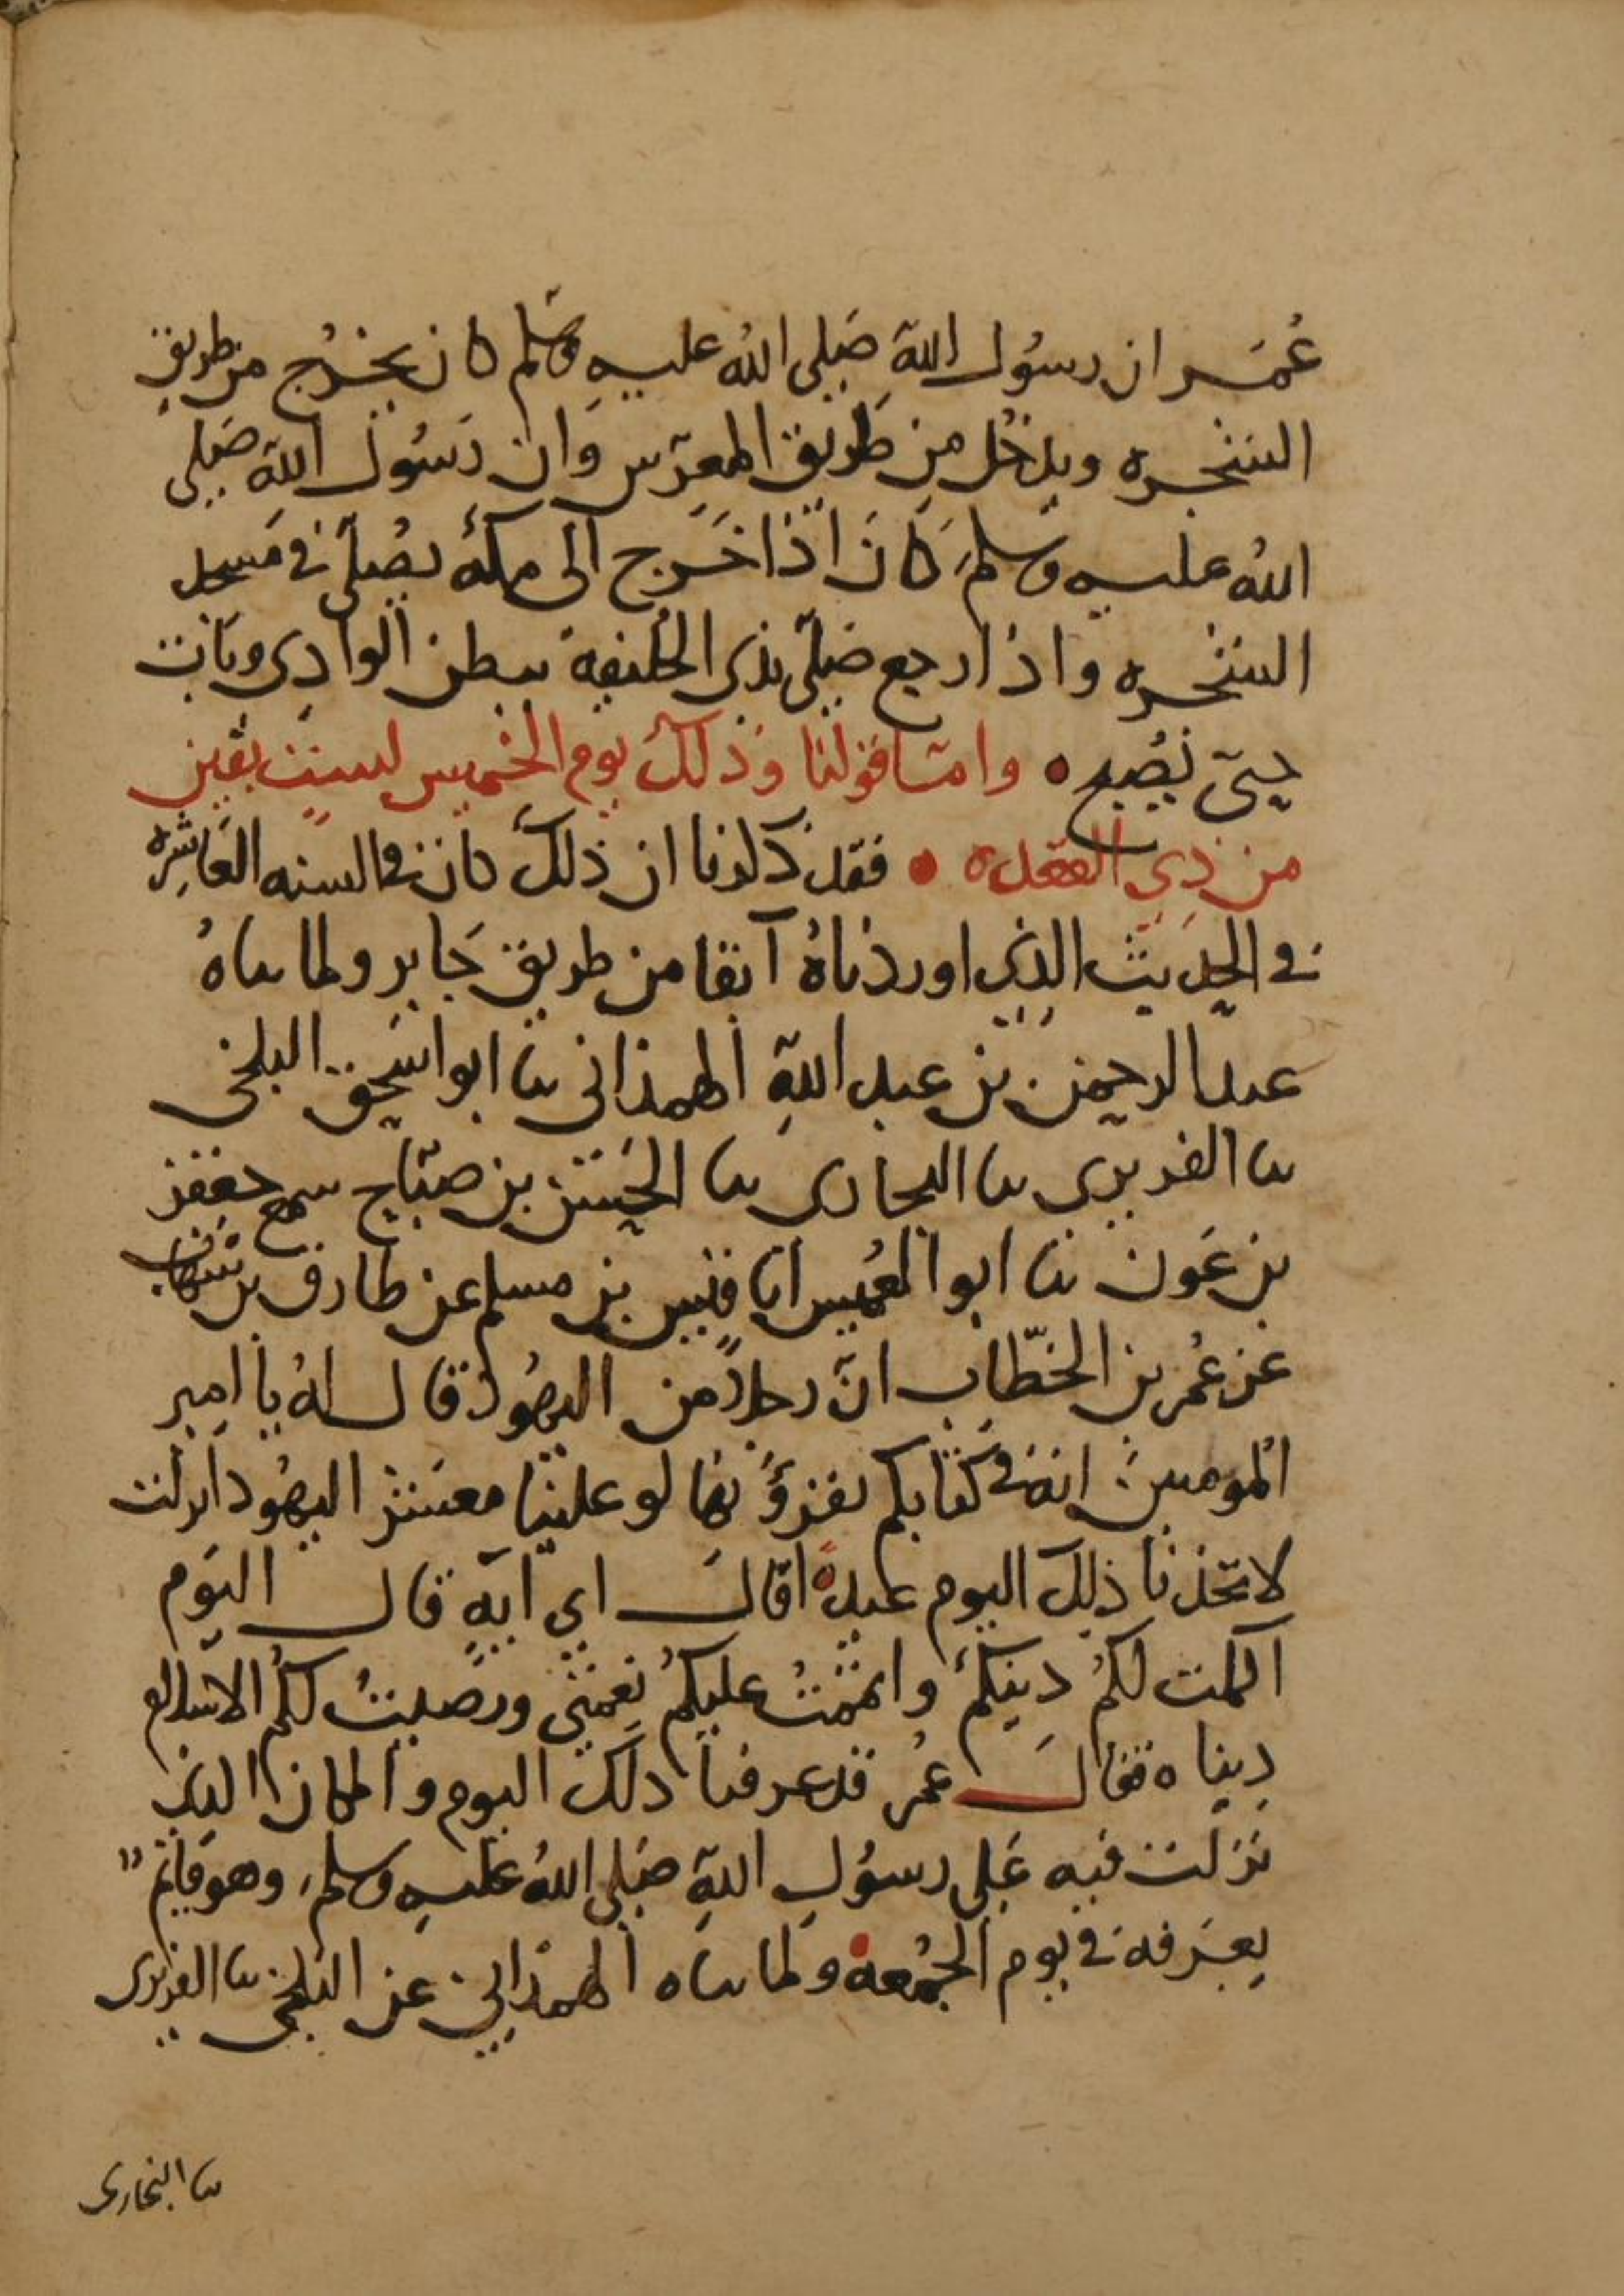 عُمَر ان رسُول اللهِ صَلى اللهُ عليه وسَلم كان يخرُج من طريق
الشجره ويدخُل مِن طَريق المعرّس وَان رَسُول اللهِ صَلى
اللهُ عليه وسلم كَانَ اذَا خَرج الى مكةُ يصُلّى فى مَسجد
الشجره واذا رجع صَلّى بذى الحُليفة ببطن الوادِي وبَات
حتى يُصبح ه وامّا قولنا وَذلكَ يوم الخميس لستٍ بقين
من ذِي القعده ه فقد ذكرنا ان ذلكَ كان فى السنه العَاشِره
فى الحدِيث الذِى اوردْناهُ آنفا من طريق جَابر ولما ساهُ
عبد الرحمن بن عبد اللهِ الهمذانى سا ابو اسَحق البلخى
سا الفربرى سا البخارى سا الحَسَن بن صبّاح سمع جعفر
بن عَون سا ابو العُميس انا قيس بن مسلم عن طارق بن شهاب
عَن عُمر بن الخطّاب انّ رجلاً من اليهُود قال لهُ يا امير
المومنين انه فى كتابكم تقرؤُنها لو علينا معشر اليهُود انزلت
لاتخذنا ذلك اليوم عيدًا قالَ اي آيه قال اليَوم
اكملت لكمُ دِينكمُ واتمَمْتُ عليكمُ نِعْمَتى ورَضيتُ لكمُ الاسلام
دِينا ه فقالَ عُمر قد عرفنا ذلكَ اليوم والمكان الذى
نَزلت فيه عَلى رسوُلِ اللهِ صَلى اللهُ عليهِ وسلم وهو قَائم
بعَرفه فى يوم الجُمُعة ولما ساه الهمذانى عن البلخى سا الفربرى
سا البخارى